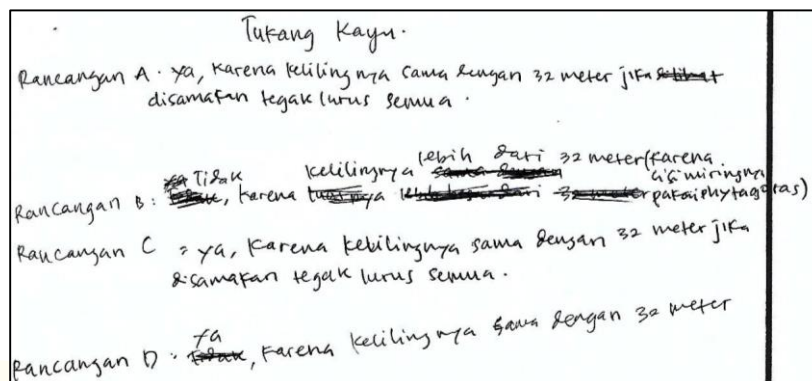 Tukang Kayu.
Rancangan A. ya, karena kelilingnya sama dengan 32 meter jika
disamakan tegak lurus semua.
Tidak kelilingnya lebih dari 32 meter (karena
Rancangan B: , karena sisi miringnya
pakai phytagoras)
Rancangan C = ya, karena kelilingnya sama dengan 32 meter jika
disamakan tegak lurus semua.
ya
Rancangan D. , karena kelilingnya sama dengan 32 meter